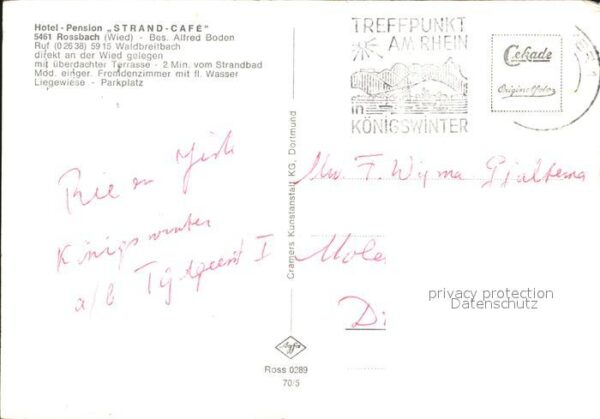 Hotel - Pension „STRAND-CAFÉ"
5461 Rossbach (Wied) - Bes. Alfred Boden
Ruf (02638) 5915 Waldbreitbach
direkt an der Wied gelegen
mit überdachter Terrasse - 2 Min. vom Strandbad
Mod. einger. Fremdenzimmer mit fl. Wasser
Liegewiese - Parkplatz
TREFFPUNKT
AM RHEIN
in
KÖNIGSWINTER
Cekade
Originalfoto
Rie en
Königswinter
a/b Tijdgeest I
Cramers Kunstanstalt KG, Dortmund
Mw. F. Wijma Gjaltema
Mole
Di
privacy protection
Datenschutz
Agfa
Ross 0289
70/5